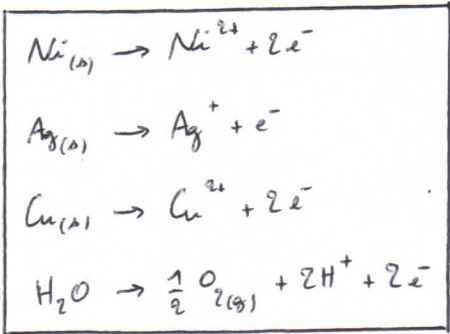 Ni(s) → Ni²⁺ + 2e⁻
Ag(s) → Ag⁺ + e⁻
Cu(s) → Cu²⁺ + 2e⁻
H₂O → 1/2 O₂(g) + 2H⁺ + 2e⁻